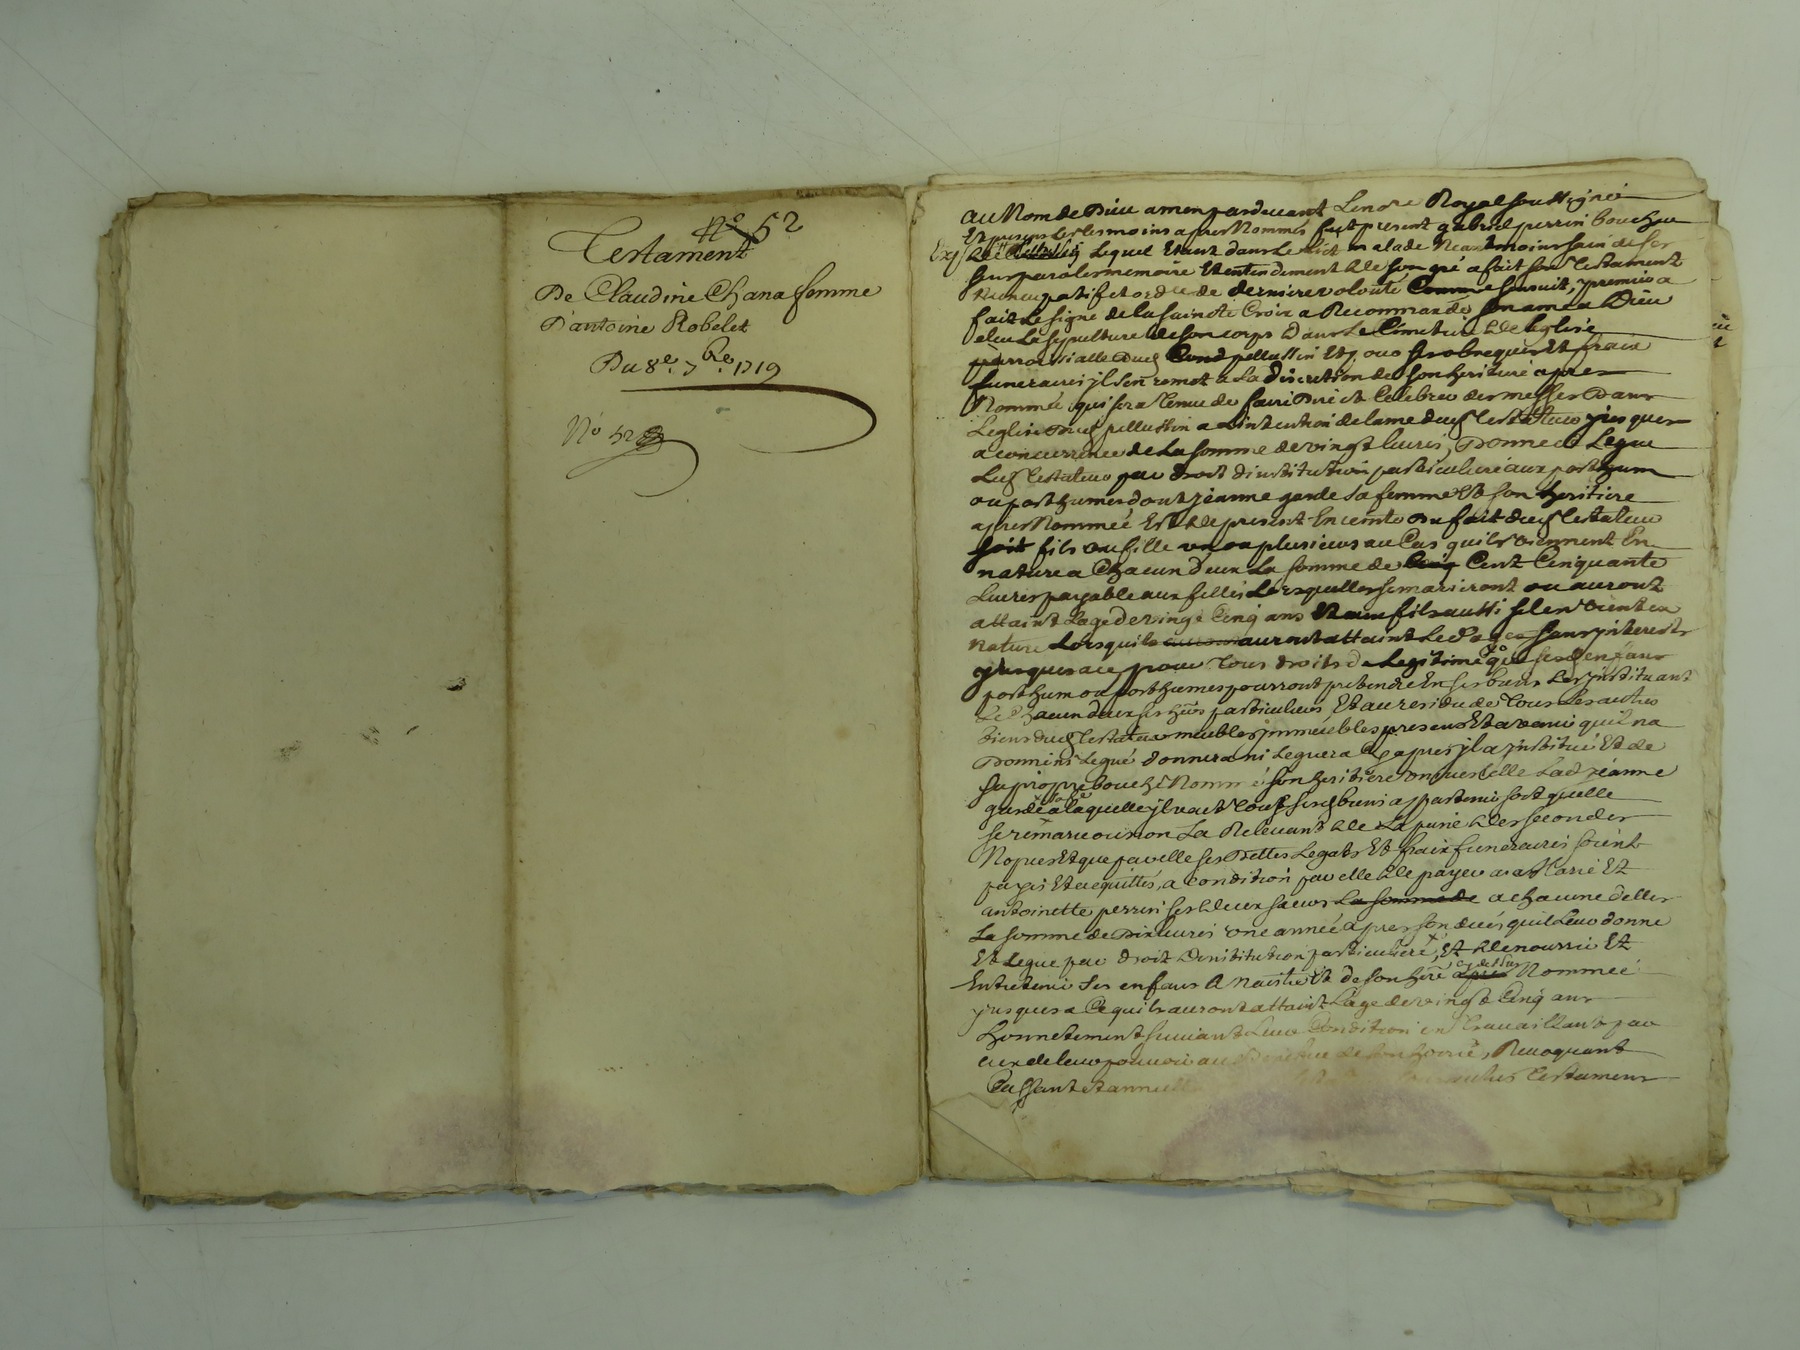 N.º 52
Testament
De Claudine Chana femme
D'antoine Robelet
Du 8.e 7bre 1719
Nº 52
au Nom de Dieu amen pardevant Le nore Royal soussigné
Et presens Les tesmoins apres Nommés fut present gabriel perrin boucher
Exp de pellussin Lequel Etant dans Le lict malade Neantmoins sain de ses
sens parole memoire Et entendement de son gré a fait son testament
Nuncupatif et ordre de derniere volonté Comme sensuit, premier a
fait Le signe de la sainte Croix a Recommandé son ame a Dieu
eleu La sepulture de son corps Dans Le Cimetiere de Leglise
parroissialle Dud pellussin Et pour ses obseques Et fraix
funeraires jl sen remet a La discretion de son heritiere apres
Nommée qui sera tenue de faire Dire et Celebrer des messes Dans
Leglise Dud pellussin a Lintention de lame dud testateur jusques
a concurrence de La somme de vingt livres, Donne et Legue
Led testateur par droit dinstitution particuliere aux posthum
ou posthumes dont jeanne garde sa femme Et son heritiere
apres Nommée Est de present Enceinte Du fait dud testateur
soit fils ou fille un ou plusieurs au Cas quils viennent En
nature a Chacun Deux La somme de Cent Cinquante
Livres payable aux filles Lorsquelles se marieront ou auront
attaint Lage de vingt Cinq ans Et aux fils aussi silen vient en
nature Lorsquils auront attaint Led age sans jnterests
jusques ace pour tous droits de Legitime que sesd enfans
posthum ou posthumes pourront pretendre En ses biens Les jnstituant
Et Chacun deux ses hers particuliers Et au residu de tous Les autres
biens dud testateur meubles jmmeubles presens Et avenir quil na
Donné ni Legué donnera ni Leguera Cy apres jl a jnstitué Et de
sa propre bouche Nommé son heritiere universelle Lad jeanne
garde a laquelle jl veut tous sesd biens appartenir soit quelle
se remarie ou non La Relevant de La peine des secondes
Nopces Et que par elle ses Dettes Legats Et fraix funeraires soient
payés Et acquittés, a condition par elle de payer a Marie Et
antoinette perrin ses deux sœurs La somme de a chacune delles
La somme de Dix Livres une année apres son deces quil Leur donne
Et Legue par droit Dinstitution particuliere, Et de nourrir Et
Entretenir ses enfans A Naistre Et de son here cy dessus Nommée
jusques a Ce quils auront attaint Lage de vingt Cinq ans
honnetement suivant Leur Condition en travaillant par
eux de leur pouvoir au de son hoirie, Revoquant
Cassant et annullant testamens